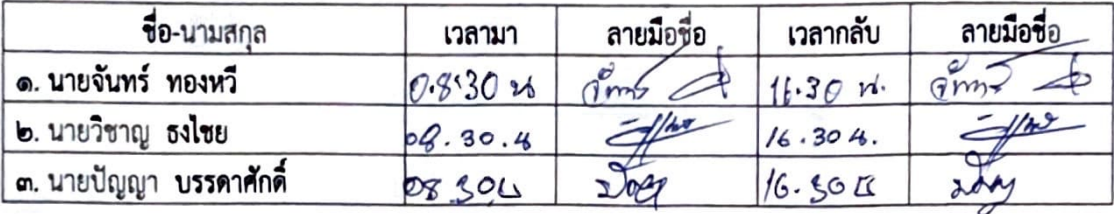 ชื่อ-นามสกุล เวลามา ลายมือชื่อ เวลากลับ ลายมือชื่อ
๑. นายจันทร์ ทองหวี 0.8:30 น จันทร์ 16.30 น. จันทร์
๒. นายวิชาญ ธงไชย 08.30.น 16.30 น.
๓. นายปัญญา บรรดาศักดิ์ 08.30น 16.30น